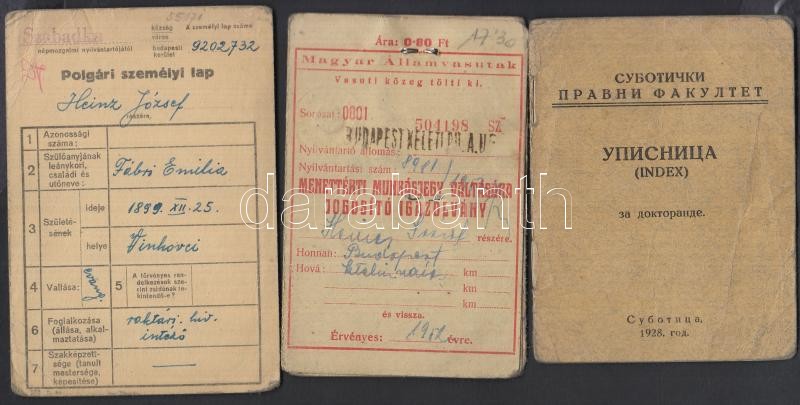 55171
Szabadka
község
város
budapesti
kerület
A személyi lap száma
népmozgalmi nyilvántartójától
9202732
Polgári személyi lap
Heinz József
részére.
1 Azonossági száma:
2 Szülőanyjának leánykori, családi és utóneve: Fábri Emília
3 Születésének ideje 1899. XII. 25.
helye Vinkovci
4 Vallása: evang.
5 A törvényes rendelkezések szerint zsidónak tekintendő-e?
6 Foglalkozása (állása, alkalmaztatása) raktári hiv. intéző
7 Szakképzettsége (tanult mestersége, képesítése) —
Ára: 0·80 Ft
17'30
Magyar Államvasutak
Vasuti közeg tölti ki.
Sorozat: 0801
504198 SZ
BUDAPEST KELETI PU.
Nyilvántartó állomás:
Nyilvántartási szám
MENETTÉRTI MUNKÁSJEGY VÁLTÁSÁRA
JOGOSITÓ IGAZOLVÁNY
József részére.
Honnan: Budapest km
Hová: km
km
és vissza.
Érvényes: évre.
СУБОТИЧКИ
ПРАВНИ ФАКУЛТЕТ
УПИСНИЦА
(INDEX)
за докторанде.
Суботица,
1928. год.
darabanth